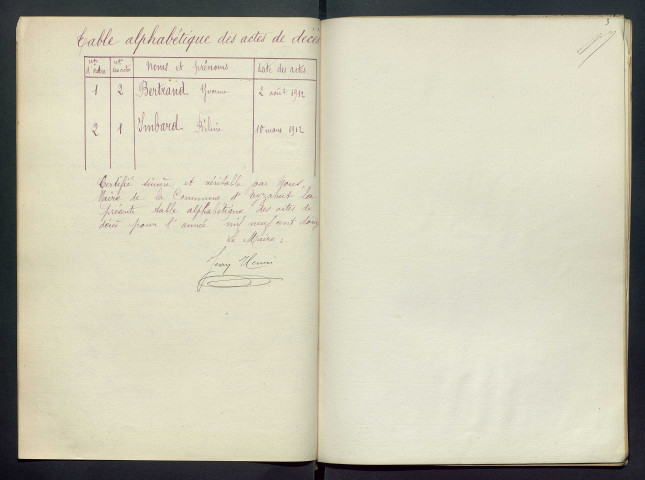 Table alphabétique des actes de décès
Nos d'ordre Nos des actes Noms et prénoms Date des actes
1 2 Bertrand Yvonne 2 août 1912
2 1 Imbard 18 mars 1912
Certifié sincère et véritable par Nous,
Maire de la Commune la
présente table alphabétique des actes de
décès pour l'année mil neuf cent douze
Le Maire :
3